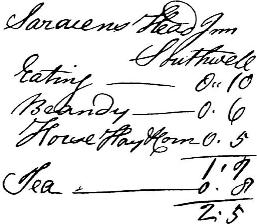 Saracens Head Inn
Southwell
Eating —— 0..10
Brandy —— 0. 6
Horse Hay & Corn 0. 5
1: 9
Tea —— 0. 8
2: 5